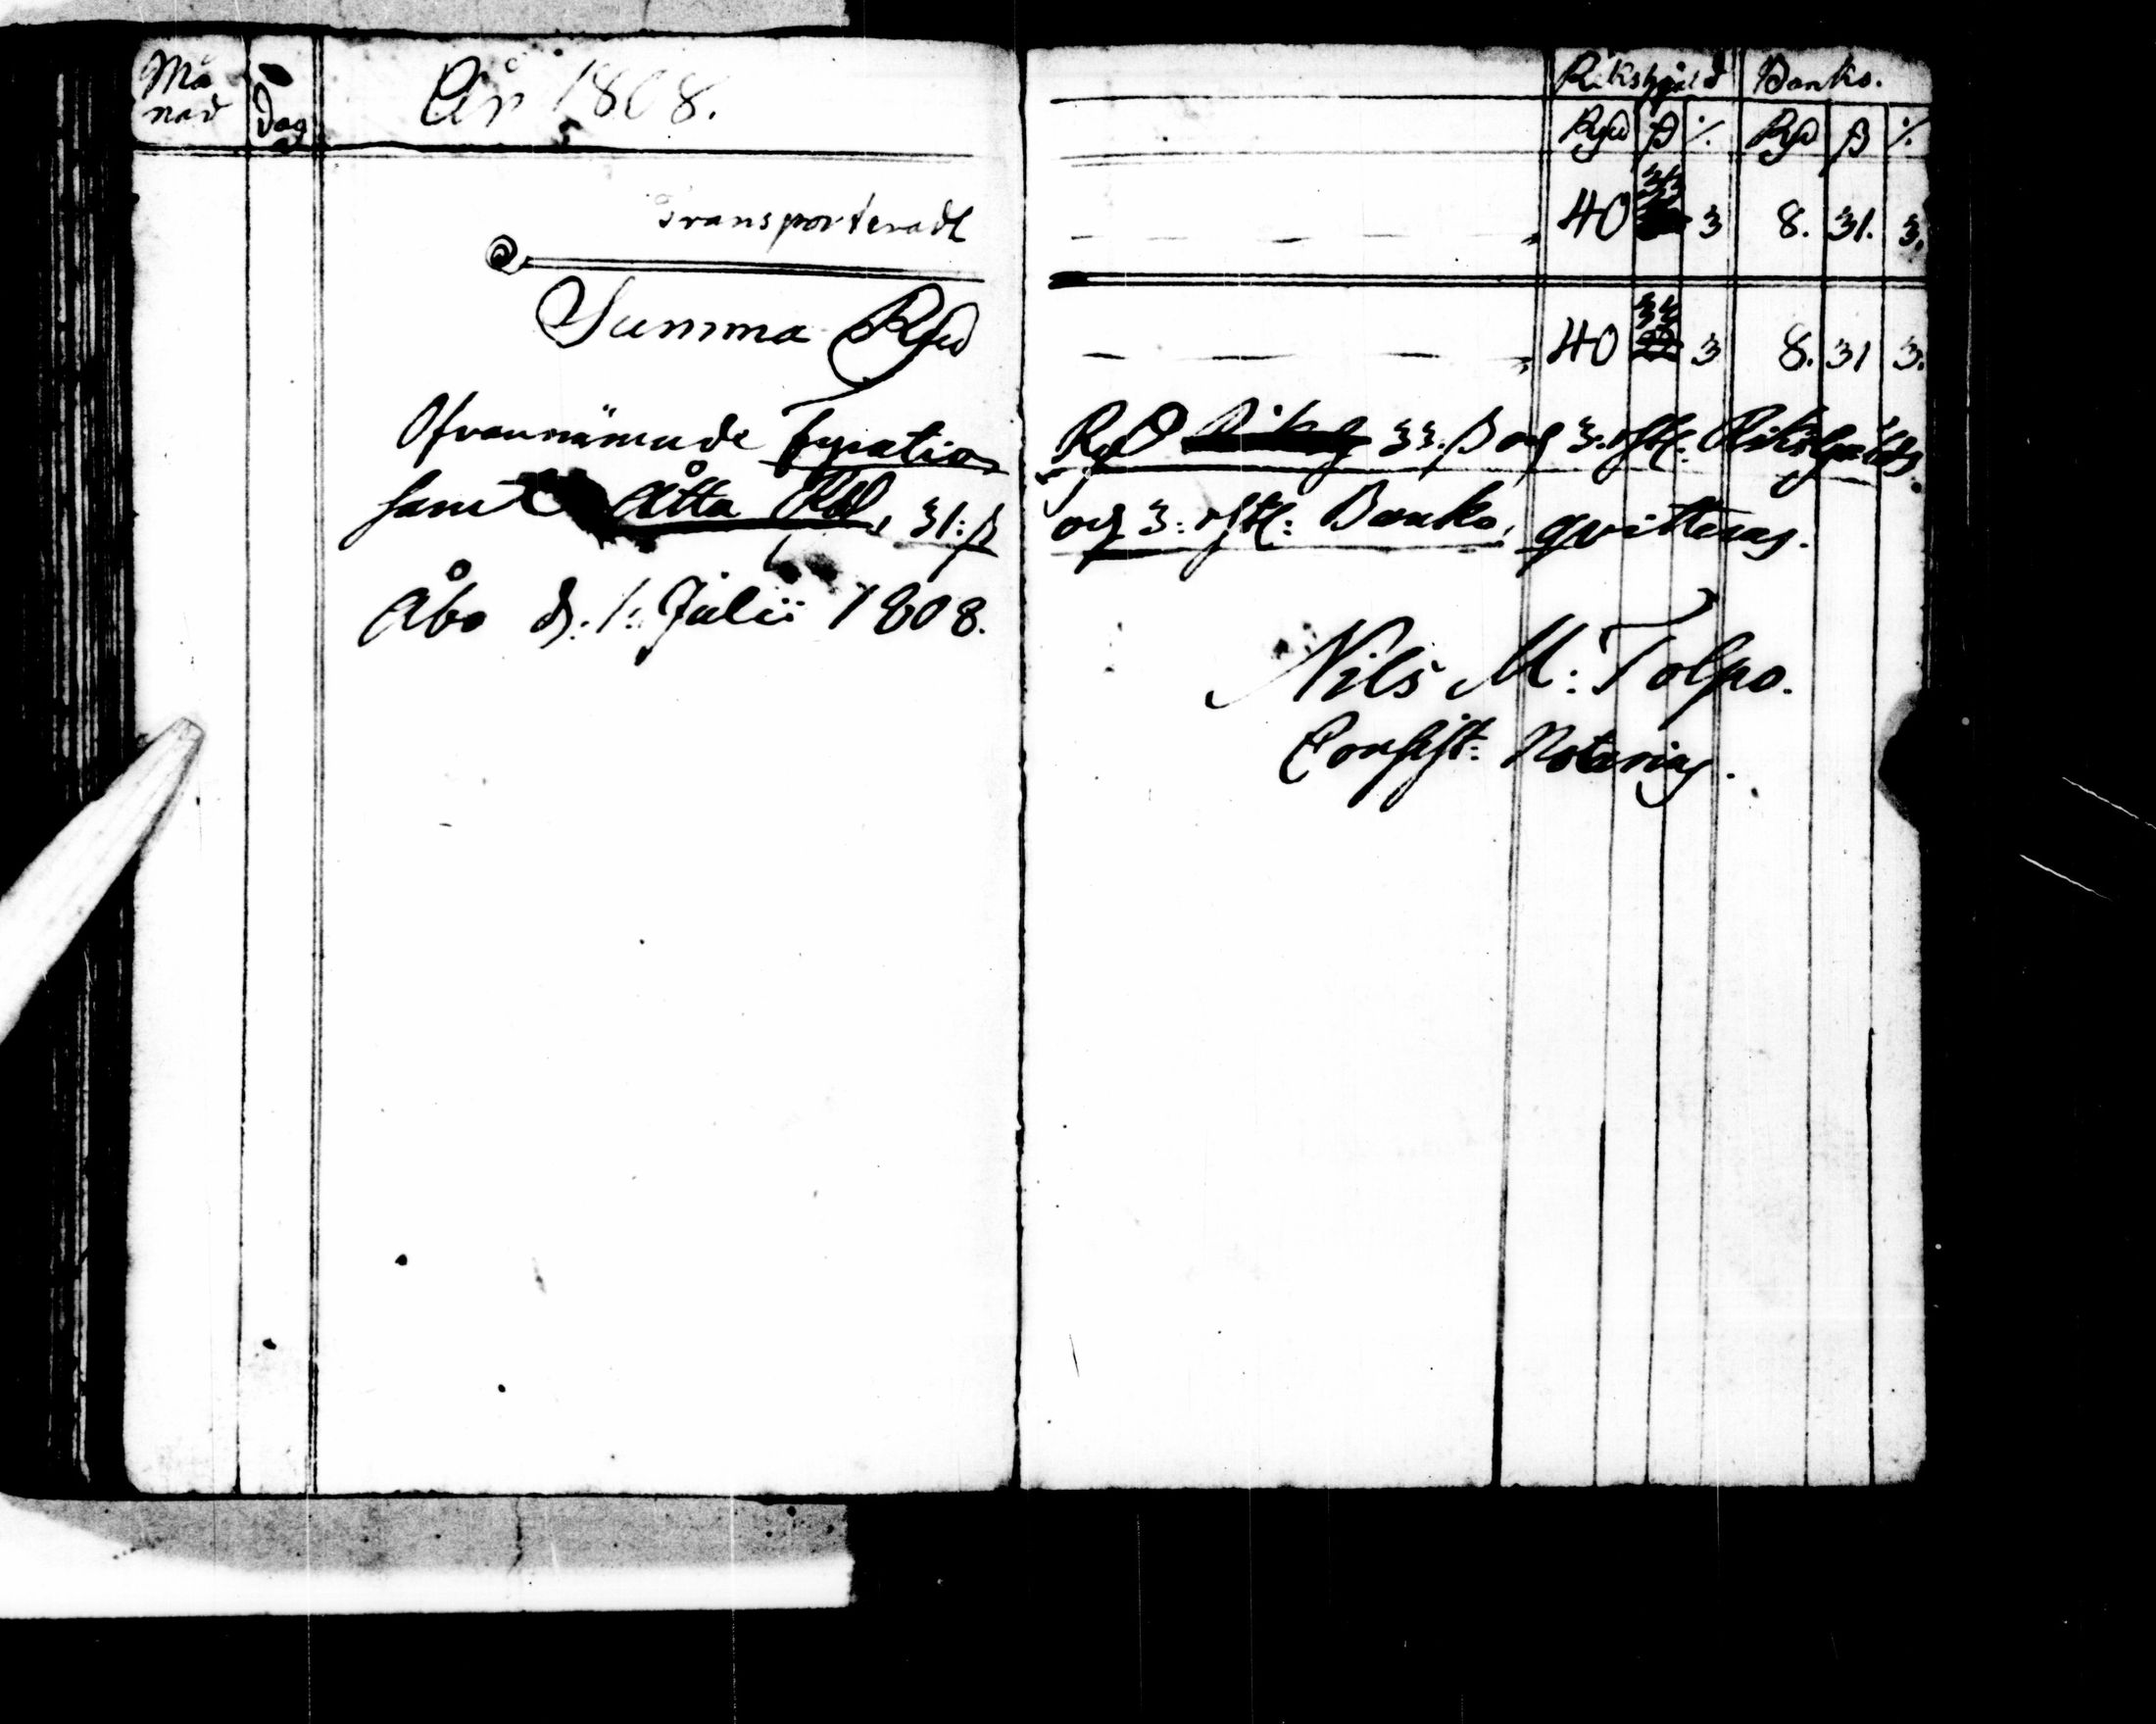 Må
nad
Dag
År 1808.
Riksgäld Banko.
RdD ß /. RdD ß /.
Transporteradt 40 33 3 8. 31. 3.
Summa RdD 40 33 3 8. 31 3.
Ofvannämnde fyratio RdD 33. ß och 3. rst. Riksgälds
samt Åtta Rdl, 31: ß och 3: rst: Banko, qvitteras.
Åbo d. 1. Julii 1808.
Nils M: Tolpo.
Consist: Notarius.